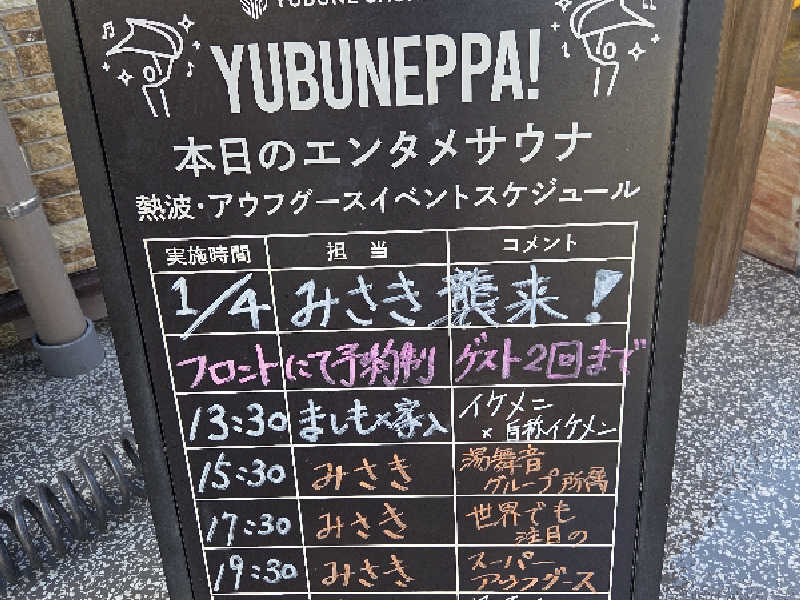 YUBUNEPPA!
本日のエンタメサウナ
熱波・アウフグースイベントスケジュール
実施時間 担当 コメント
1/4 みさき襲来!
フロントにて予約制 ゲスト2回まで
13:30 ましも×家入 イケメン
×自称イケメン
15:30 みさき 湯舞音
グループ所属
17:30 みさき 世界でも
注目の
19:30 みさき スーパー
アウフグース